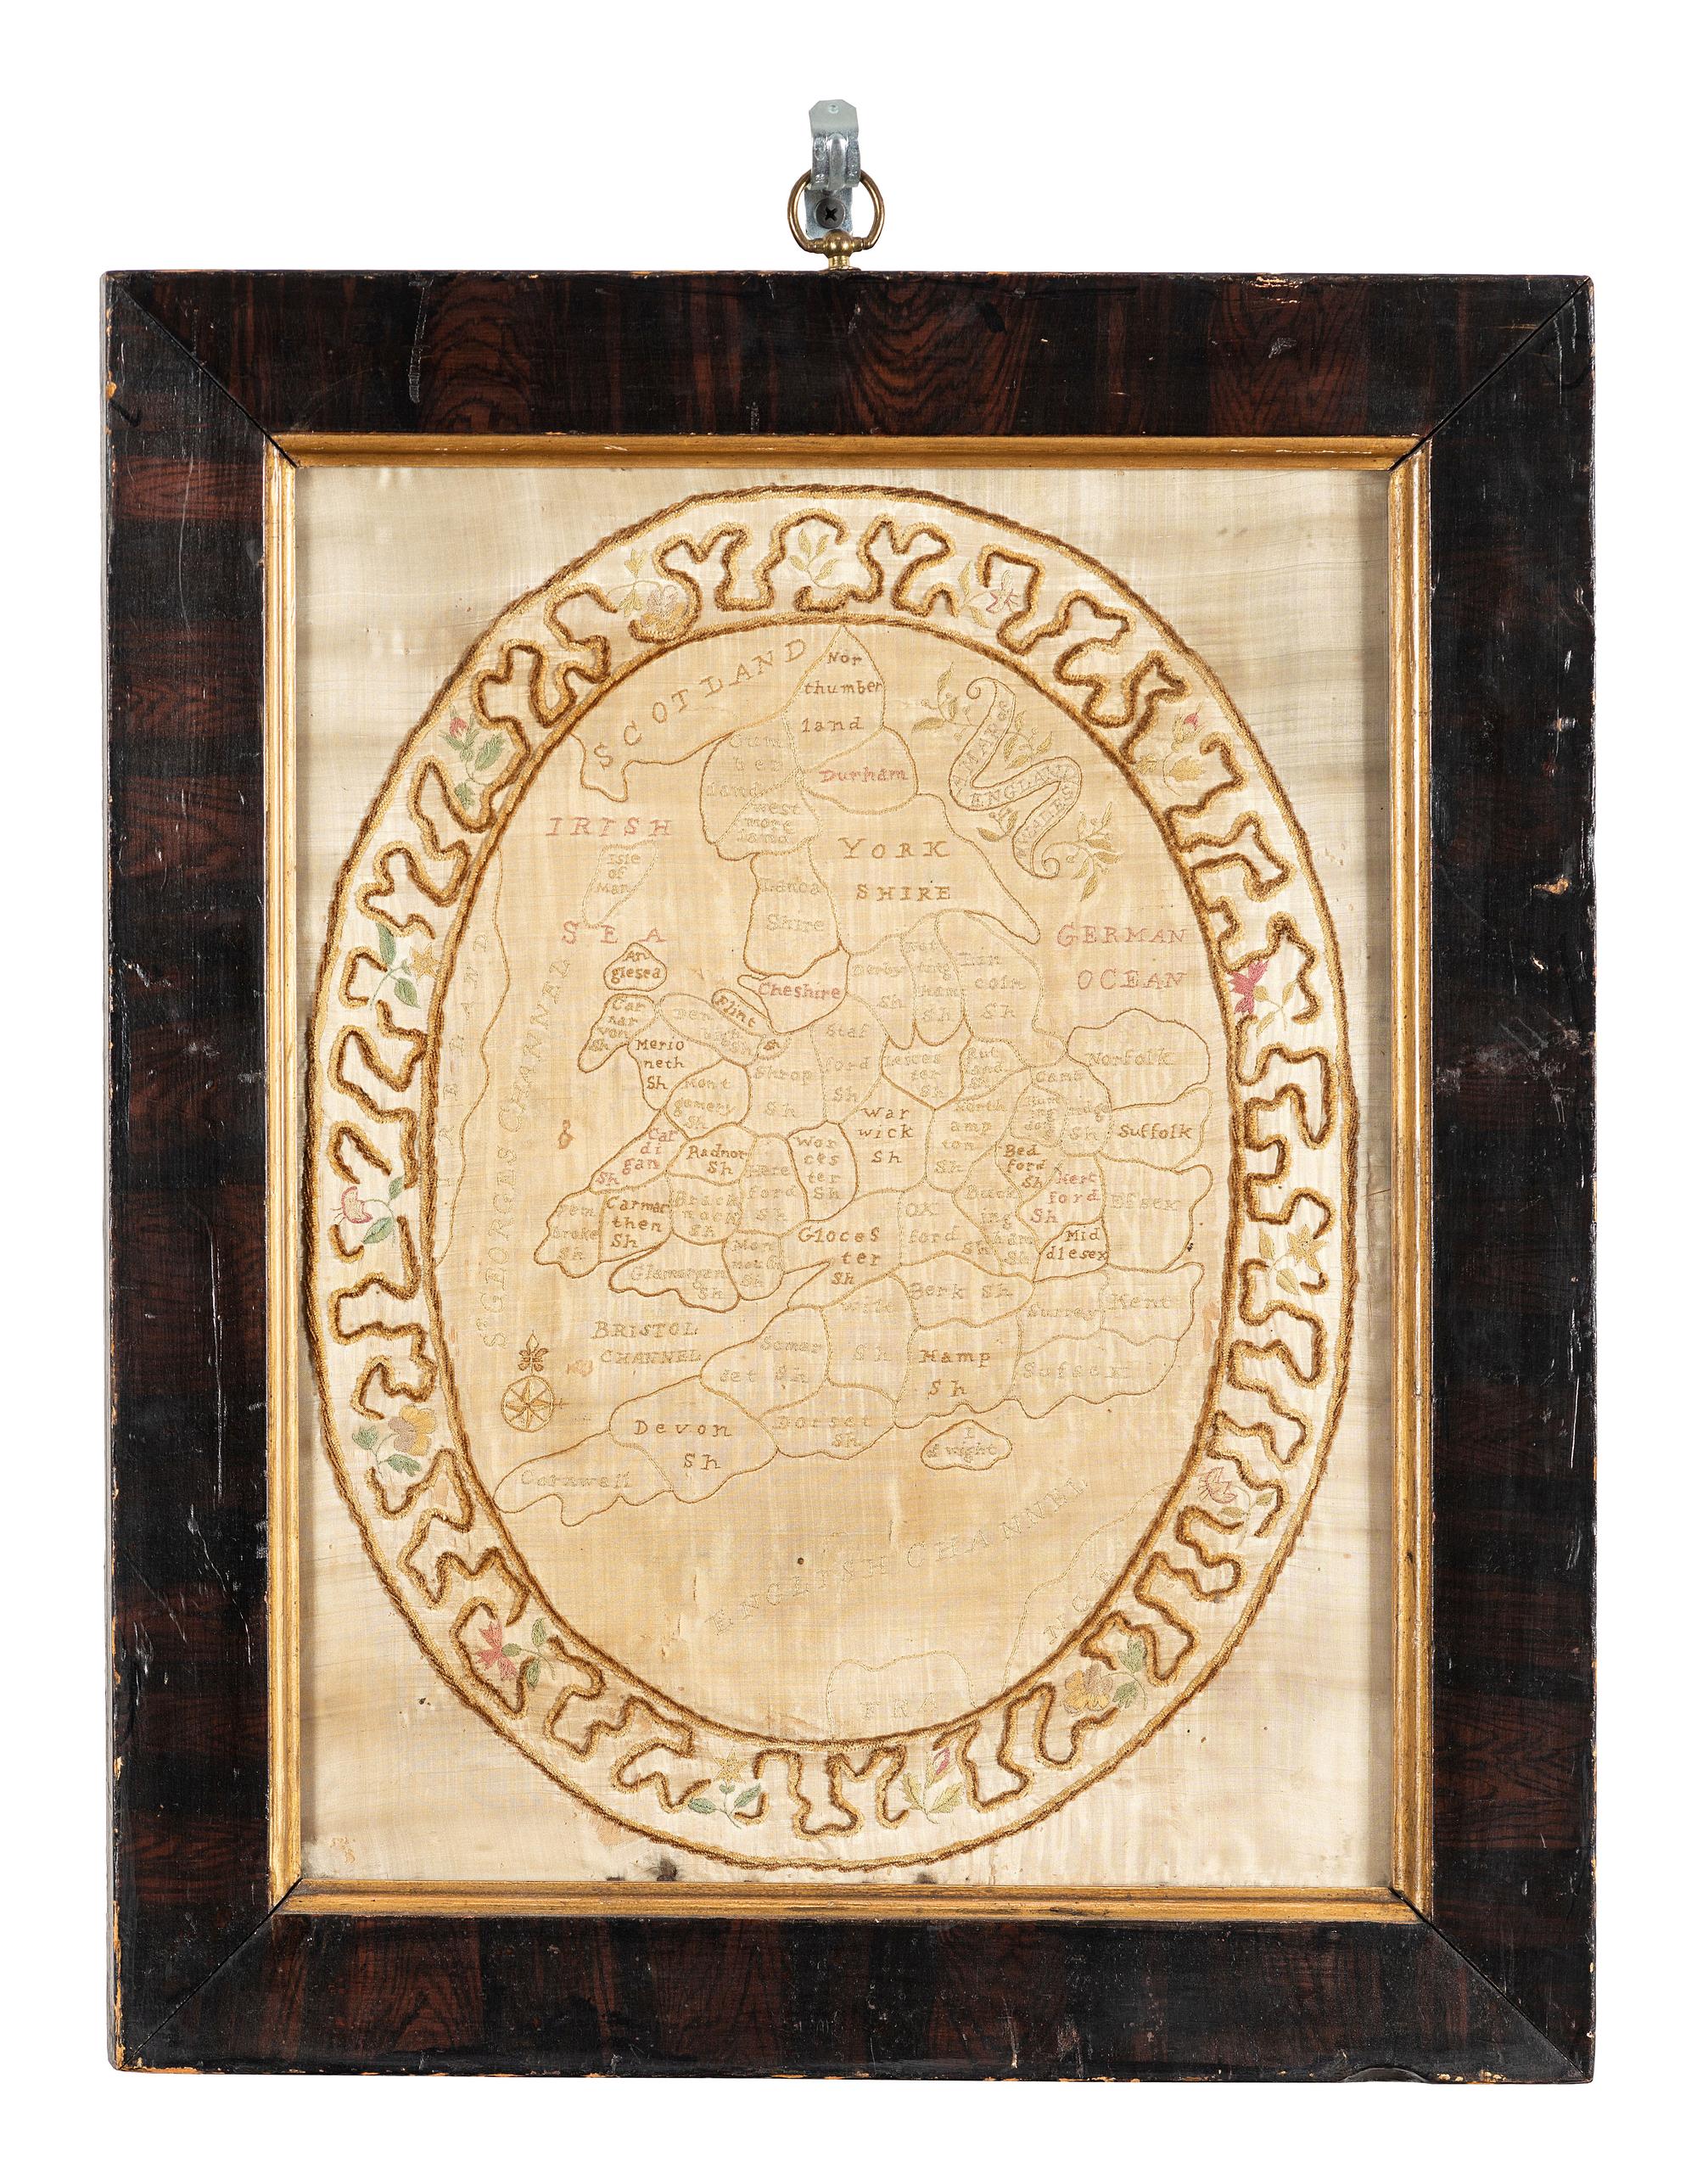 SCOTLAND
Nor
thumber
land
Cum
ber
land
west
more
land
Durham
A MAP of
ENGLAND
WALES
IRISH
SEA
Isle
of
Man
YORK
SHIRE
Lanca
Shire
GERMAN
OCEAN
An
glesea
Cheshire
Flint
Sh
Car
nar
von
Sh
Den
bigh
Sh
Derby
Sh
Not
ting
ham
Sh
Lin
coln
Sh
Merio
neth
Sh
Mont
gomery
Sh
Shrop
Sh
Staf
ford
Sh
Leices
ter
Sh
Rut
land
Sh
Norfolk
Cam
bridge
Sh
Hunt
ing
don
Suffolk
IRELAND
ST GIORGES CHANNEL
Car
di
gan
Sh
Radnor
Sh
Here
ford
Sh
Wor
ces
ter
Sh
War
wick
Sh
North
amp
ton
Sh
Bed
ford
Sh
Pem
broke
Sh
Carmar
then
Sh
Breck
nock
Sh
Glamorgan
Sh
Mon
mouth
Sh
Gloces
ter
Sh
OX
ford
Sh
Buck
ing
ham
Sh
Hert
ford
Sh
Efsex
Mid
dlesex
BRISTOL
CHANNEL
Wilt
Sh
Berk Sh
Surrey
Kent
Somar
set Sh
Hamp
Sh
Sufsex
Devon
Sh
Dorset
Sh
I
of wight
Cornwall
ENGLISH CHANNEL
FRA